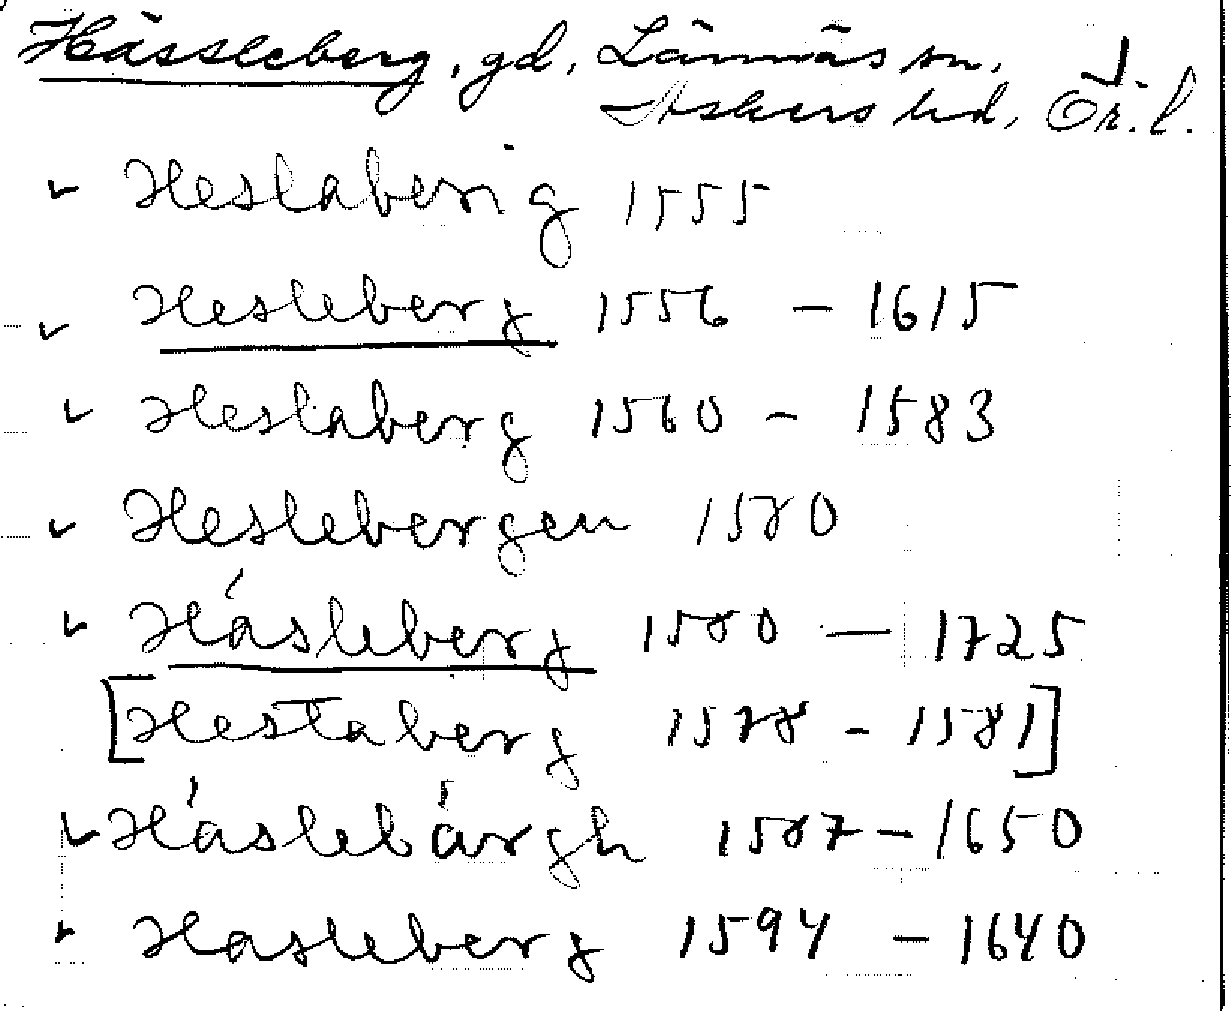 Hässleberg, gd, Lännäs sn,
Askers hd, Ör. l.
Heslabersig 1555
Hesleberg 1556 – 1615
Heslaberg 1560 – 1583
Heslebergen 1580
Håsleberg 1580 – 1725
[Hestaberg 1578 – 1581]
Håslebårgh 1587 – 1650
Hasleberg 1594 – 1640